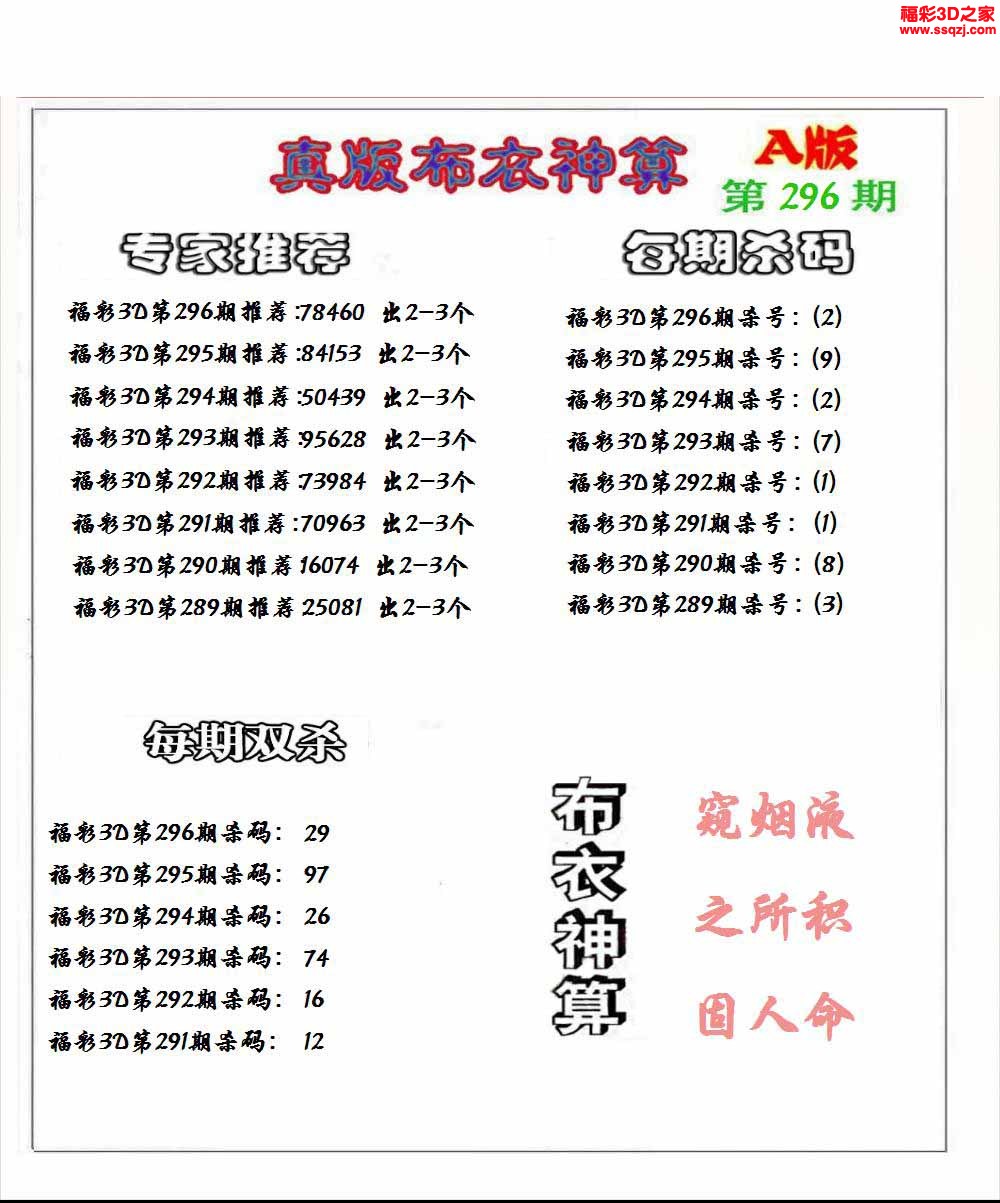 福彩3D之家
www.ssqzj.com
真版布衣神算
A版
第 296 期
专家推荐
福彩3D第296期推荐:78460 出2-3个
福彩3D第295期推荐:84153 出2-3个
福彩3D第294期推荐:50439 出2-3个
福彩3D第293期推荐:95628 出2-3个
福彩3D第292期推荐:73984 出2-3个
福彩3D第291期推荐:70963 出2-3个
福彩3D第290期推荐:16074 出2-3个
福彩3D第289期推荐:25081 出2-3个
每期杀码
福彩3D第296期杀号：(2)
福彩3D第295期杀号：(9)
福彩3D第294期杀号：(2)
福彩3D第293期杀号：(7)
福彩3D第292期杀号：(1)
福彩3D第291期杀号：(1)
福彩3D第290期杀号：(8)
福彩3D第289期杀号：(3)
每期双杀
福彩3D第296期杀码： 29
福彩3D第295期杀码： 97
福彩3D第294期杀码： 26
福彩3D第293期杀码： 74
福彩3D第292期杀码： 16
福彩3D第291期杀码： 12
布衣神算
窥烟液
之所积
固人命